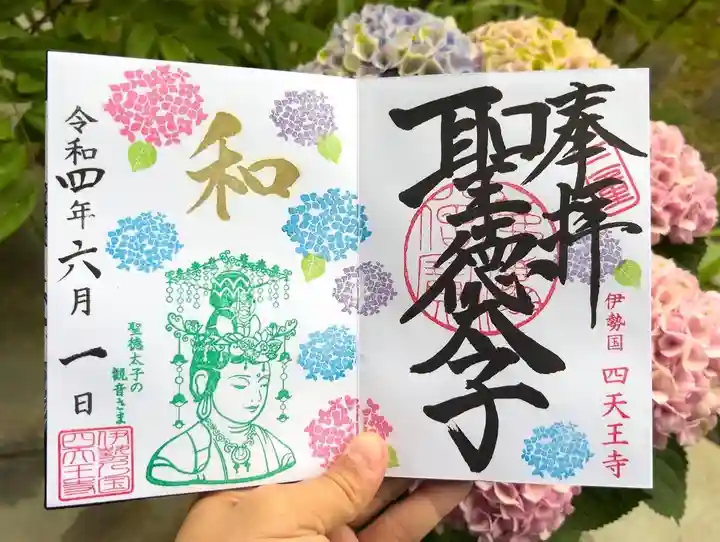 奉拝
聖徳太子
伊勢国 四天王寺
和
聖徳太子の
観音さま
令和四年六月一日
伊勢乃国
四天王寺